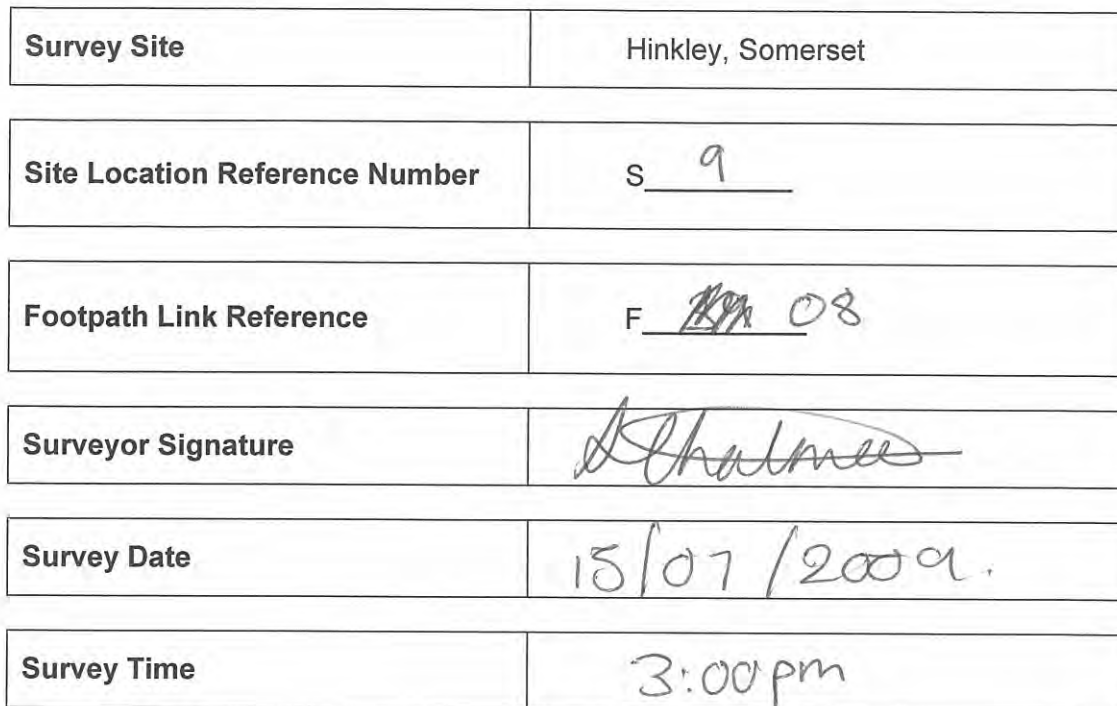 Survey Site Hinkley, Somerset
Site Location Reference Number S 9
Footpath Link Reference F 08
Surveyor Signature
Survey Date 15/07/2009.
Survey Time 3:00pm